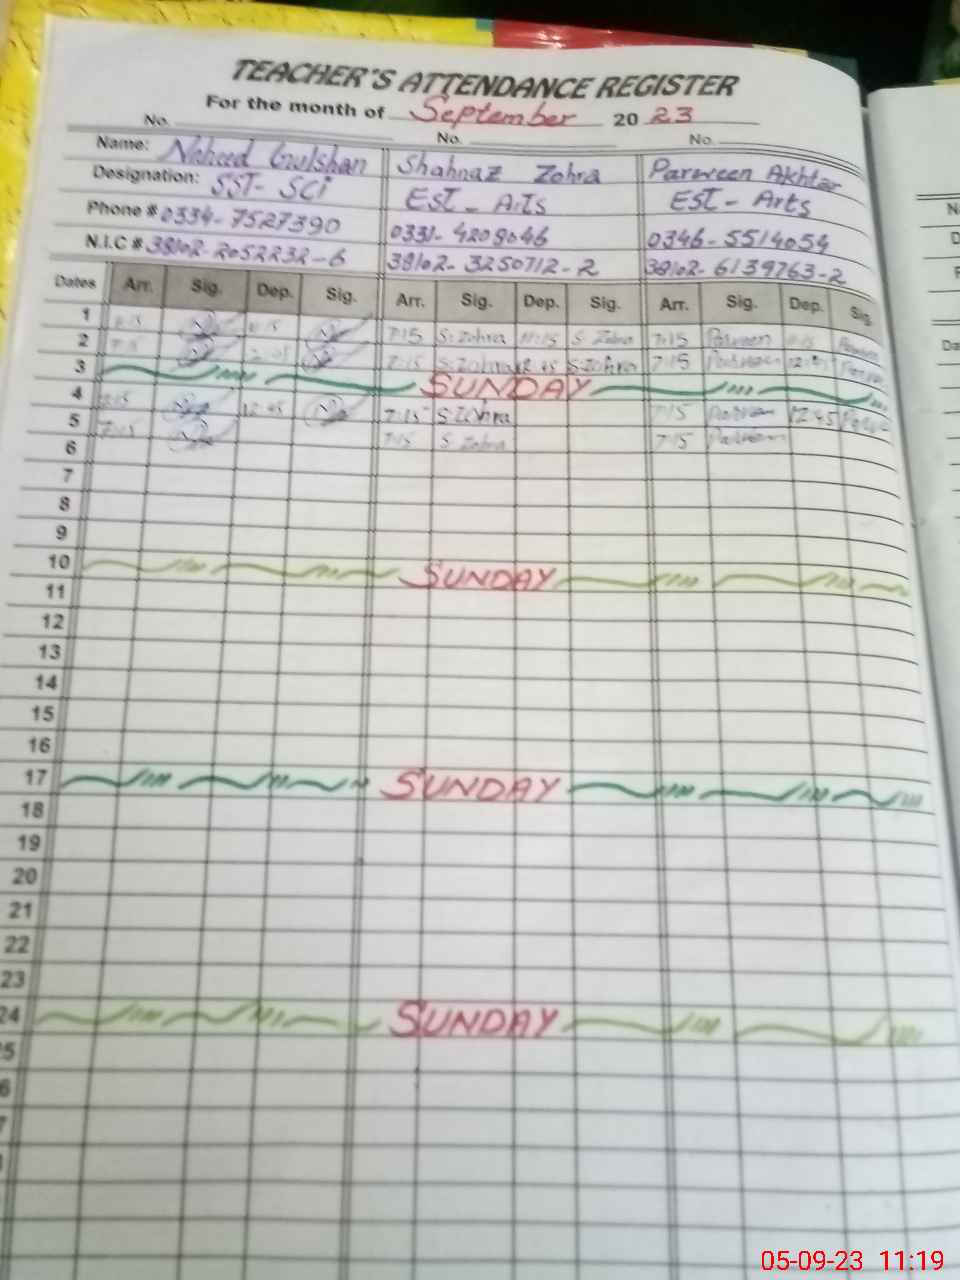 TEACHER'S ATTENDANCE REGISTER
For the month of September 20 23
No. No. No.
Name: Naheed Gulshan Shahnaz Zohra Parveen Akhtar
Designation: SST- SCi EST - Arts EST - Arts
Phone # 0334-7527390 0331-4209046 0346-5514054
N.I.C # 38102-2052232-6 38102-3250712-2 38102-6139763-2
Dates Arr. Sig. Dep. Sig. Arr. Sig. Dep. Sig. Arr. Sig. Dep. Sig.
1 7:15 S.Zohra 11:15 S Zohra 7:15 Parveen
2 7:15 7:15 S.Zohra 12:45 S.Zohra 7:15 Parveen 12:45
3 SUNDAY
4 7:15 12:45 7:15 S.Zohra 7:15 Parveen 12:45
5 7:15 7:15 S Zohra 7:15 Parveen
6
7
8
9
10 SUNDAY
11
12
13
14
15
16
17 SUNDAY
18
19
20
21
22
23
24 SUNDAY
05-09-23 11:19